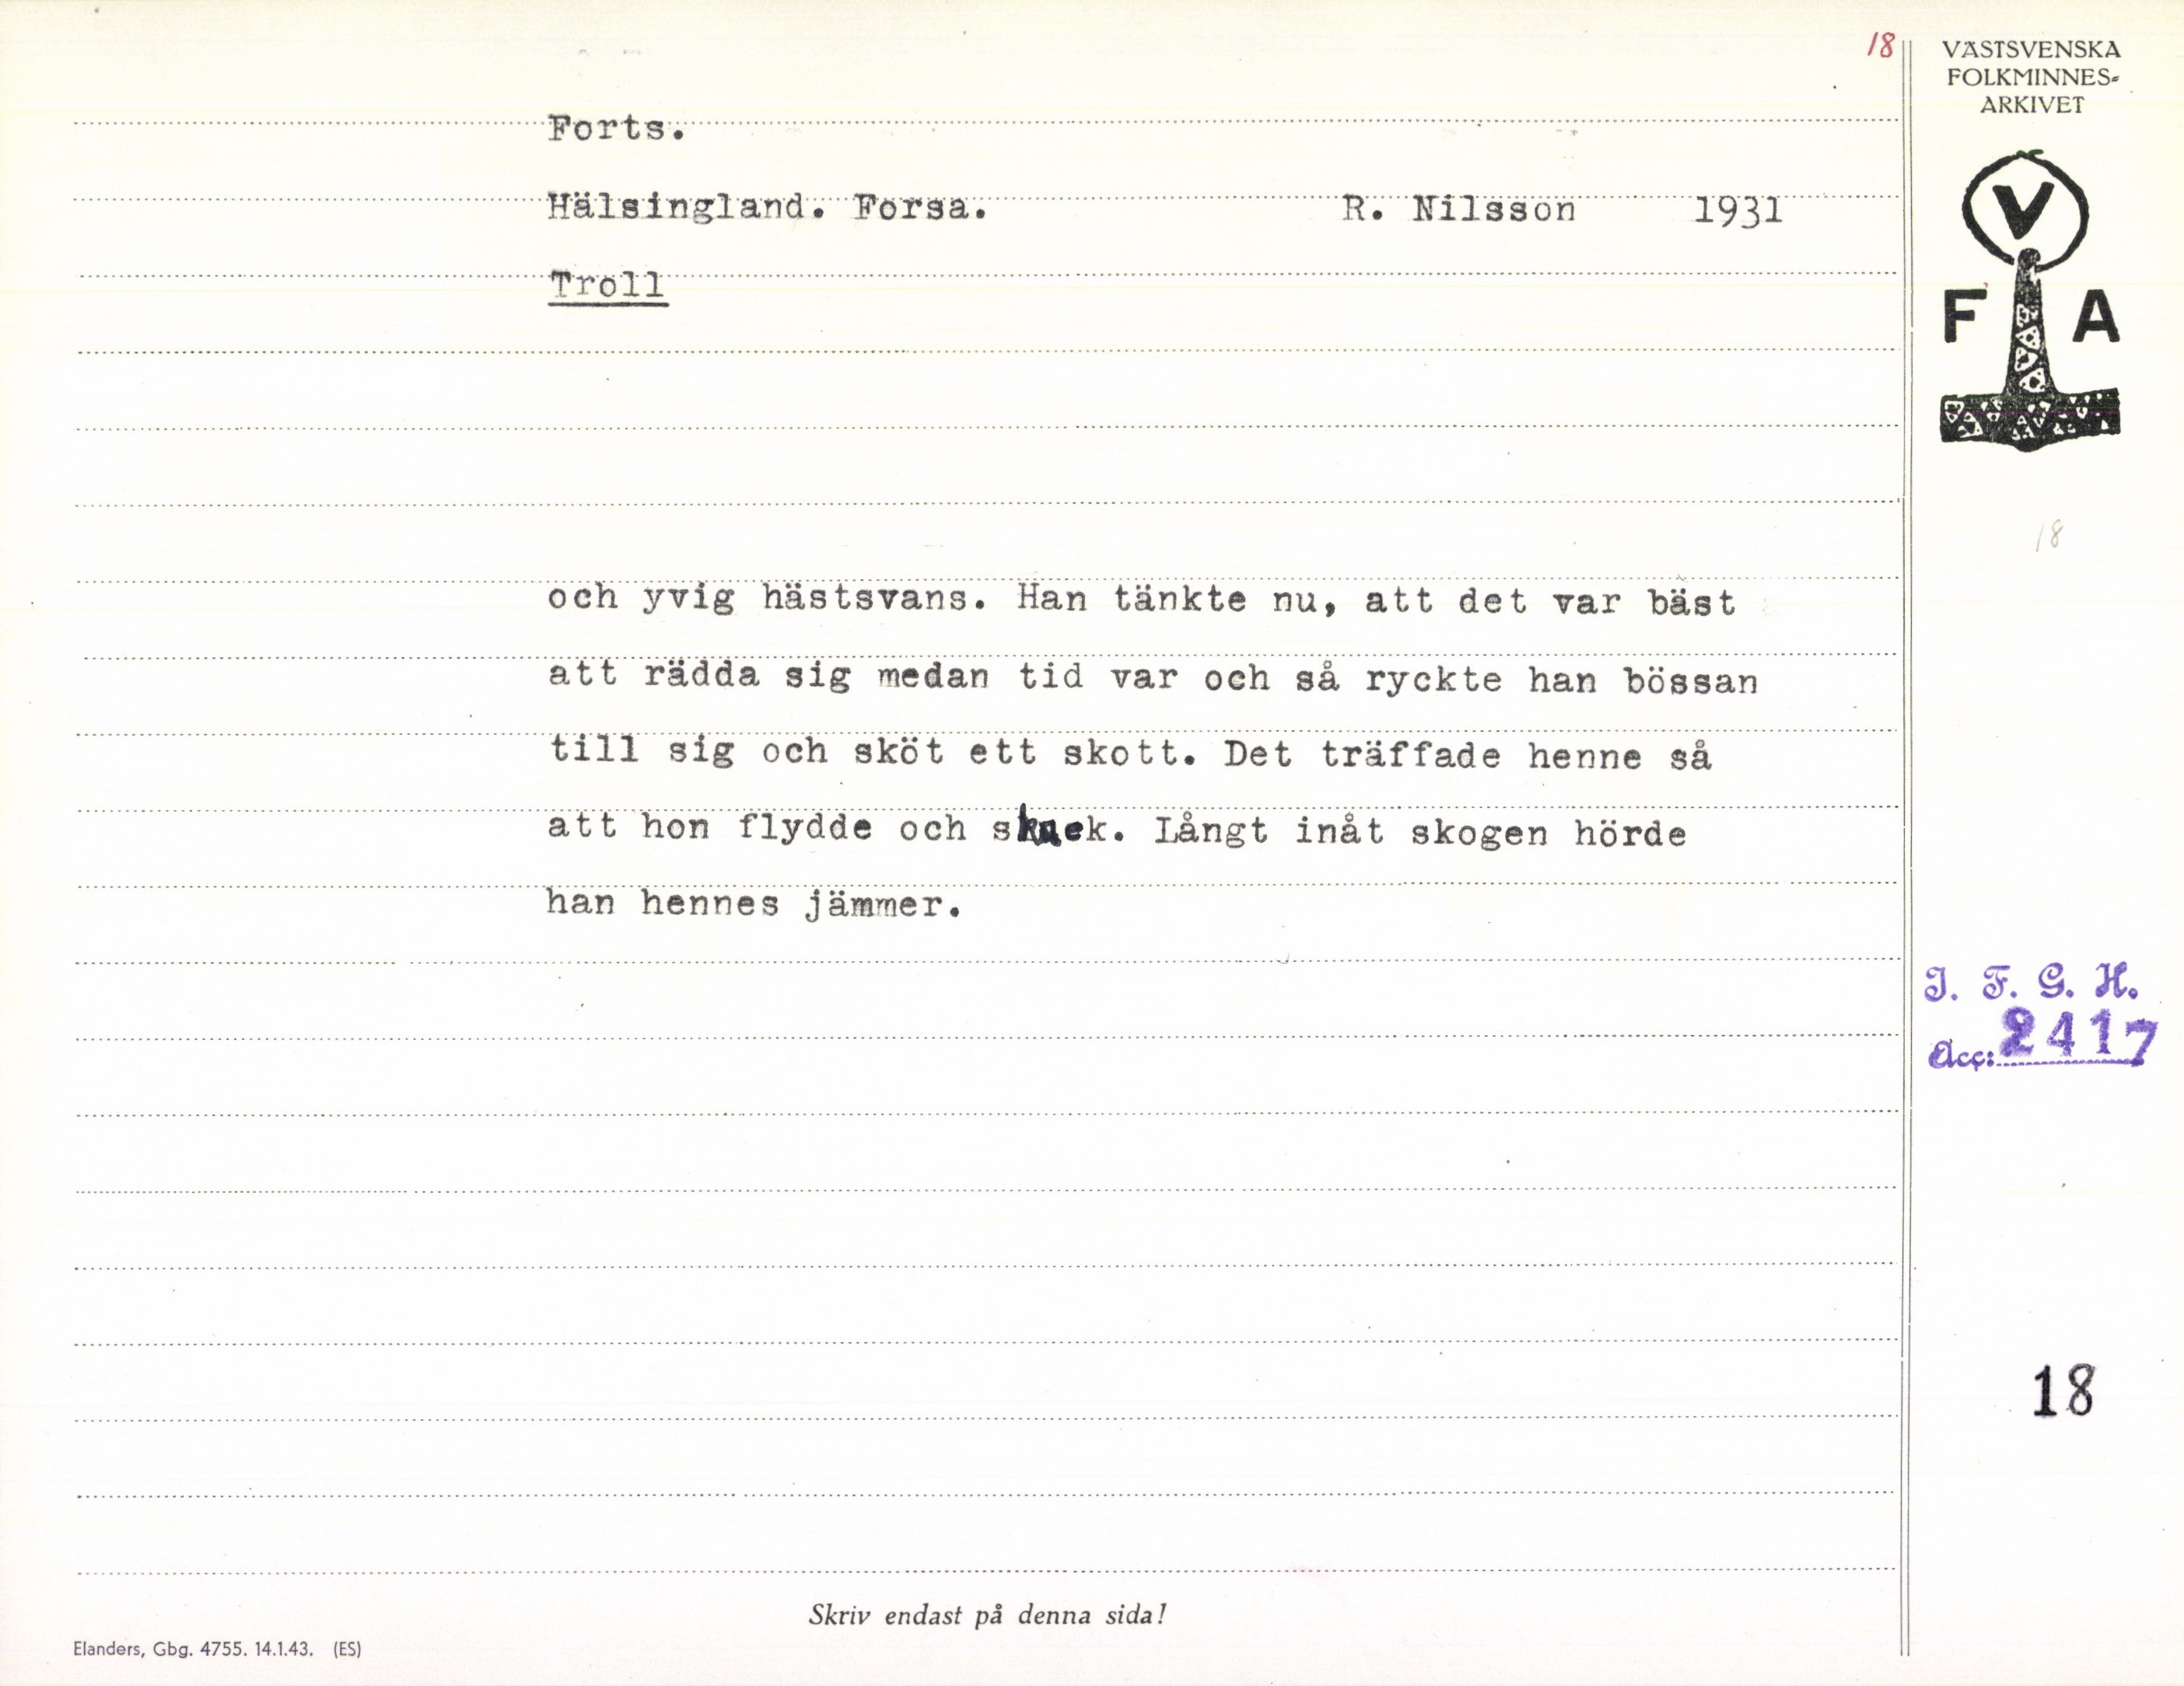 18
VÄSTSVENSKA
FOLKMINNES-
ARKIVET
Forts.
Hälsingland. Forsa. R. Nilsson 1931
Troll
V
F A
18
och yvig hästsvans. Han tänkte nu, att det var bäst
att rädda sig medan tid var och så ryckte han bössan
till sig och sköt ett skott. Det träffade henne så
att hon flydde och Långt inåt skogen hörde
han hennes jämmer.
I. F. G. H.
Acc: 2417
18
Skriv endast på denna sida!
Elanders, Gbg. 4755. 14.1.43. (ES)